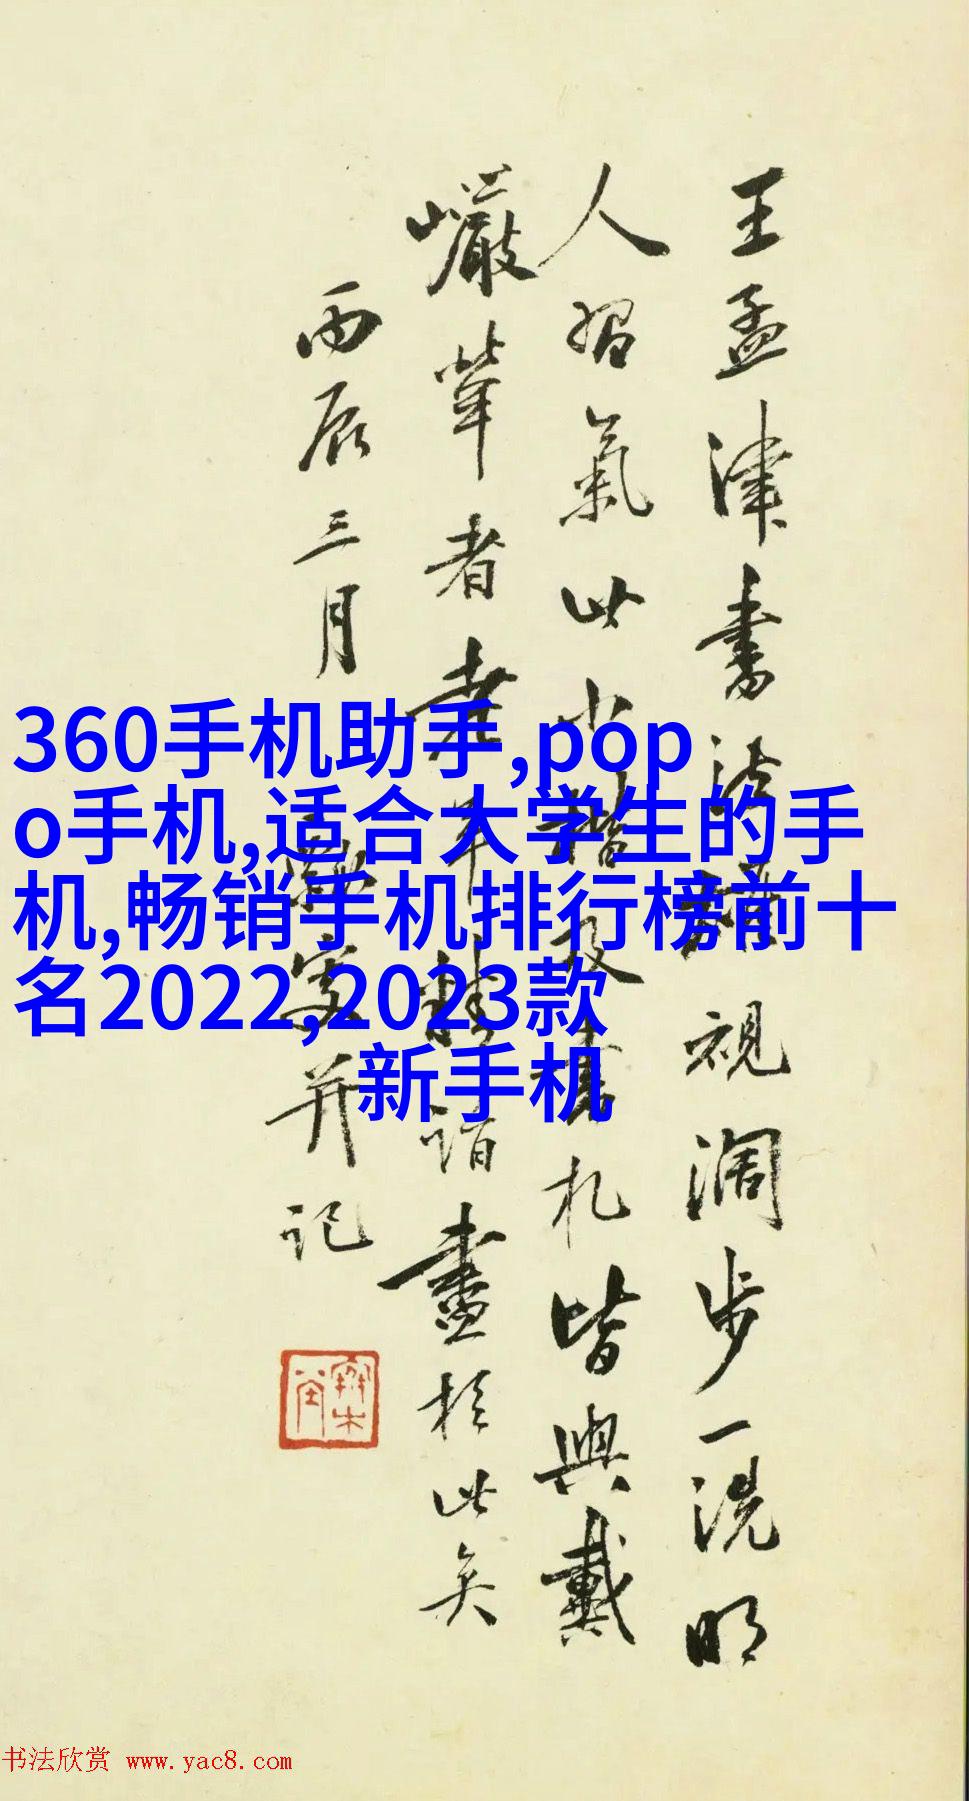 360手机助手,pop
o手机,适合大学生的手
机,畅销手机排行榜前十
名2022,2023款
新手机
王孟津書法視闊步一洗明
人習氣此小楷及書札皆與戴
巖犖者老年精詣盡於此矣
丙辰三月并記
书法欣赏 www.yac8.com